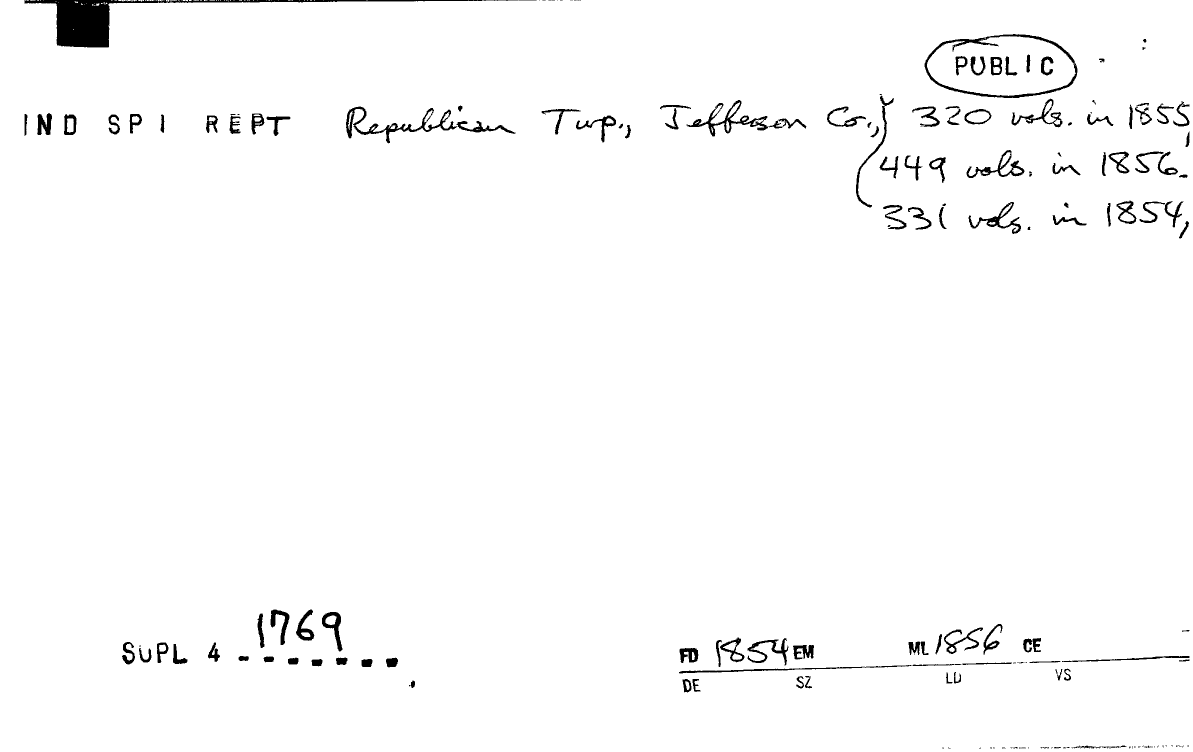 PUBLIC
IND SPI REPT Republican Twp., Jefferson Co., 320 vols. in 1855,
449 vols. in 1856.
331 vols. in 1854,
SUPL 4 1769
FD 1854 EM ML 1856 CE
DE SZ LD VS